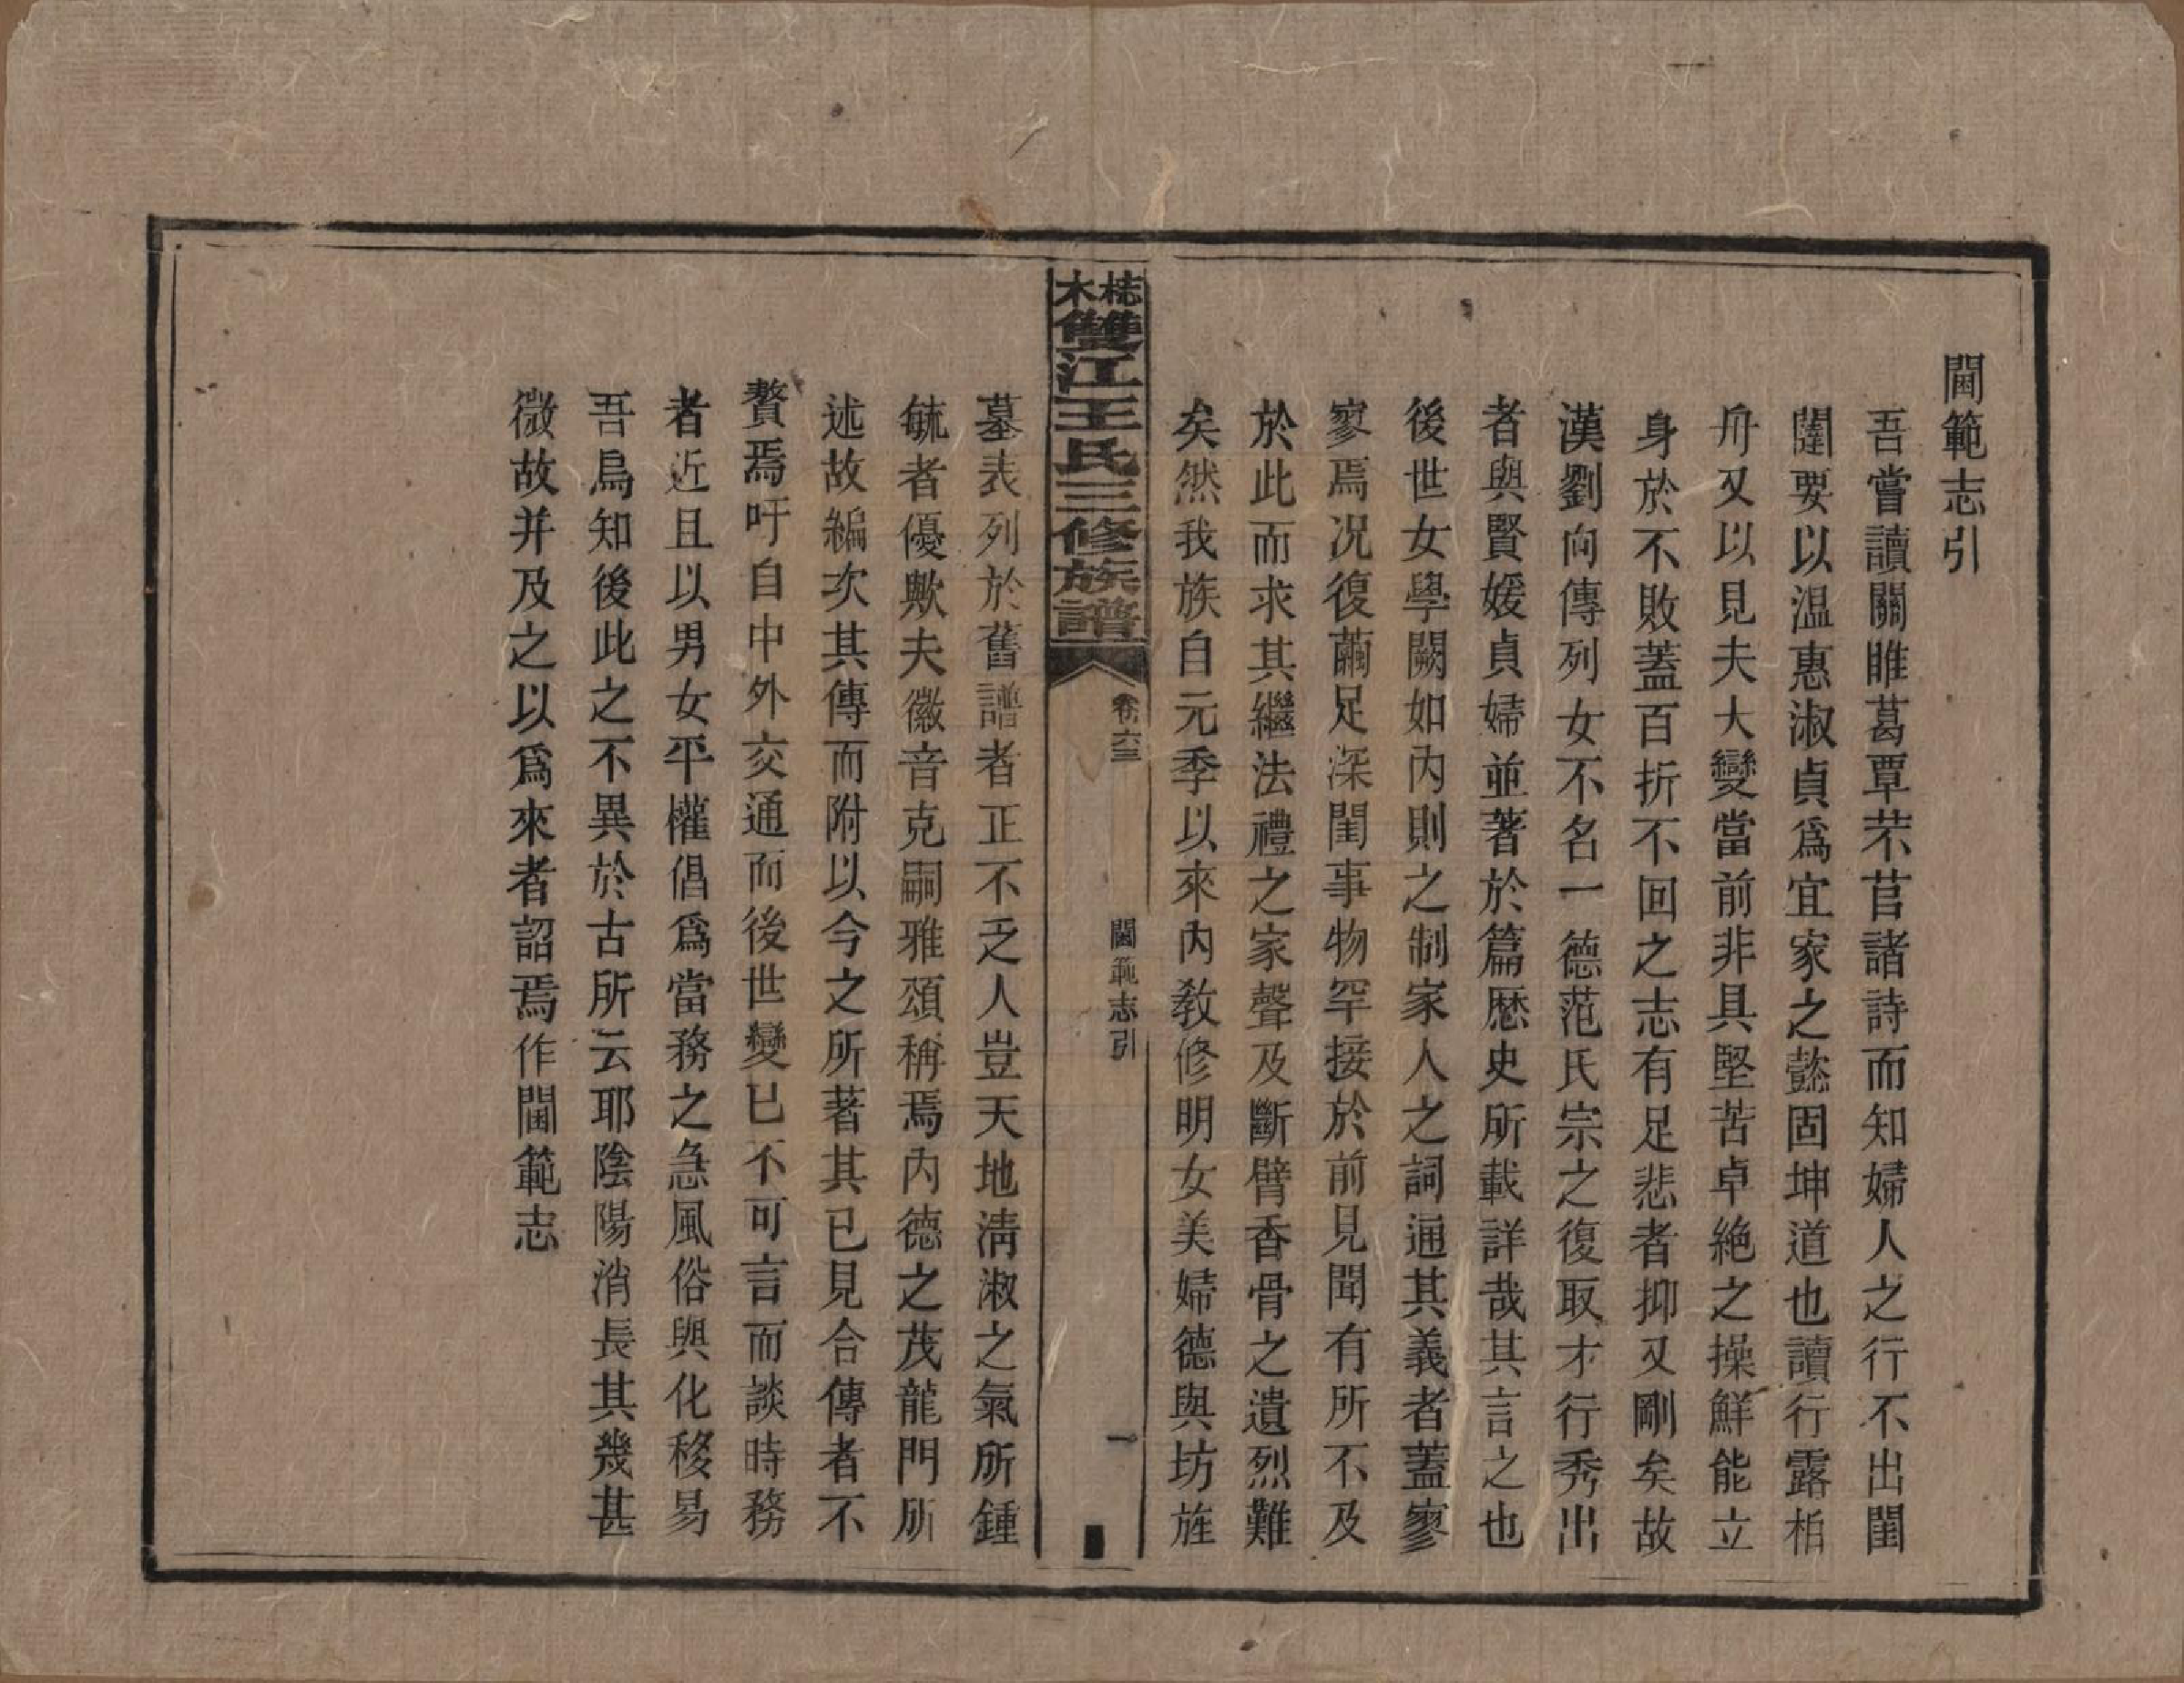 閫範志引
吾嘗讀關睢葛覃芣苢諸詩而知婦人之行不出閨
闥要以温惠淑貞爲宜家之懿固坤道也讀行露栢
舟又以見夫大變當前非具堅苦卓絶之操鮮能立
身於不敗蓋百折不回之志有足悲者抑又剛矣故
漢劉向傳列女不名一德范氏宗之復取才行秀出
者與賢媛貞婦並著於篇歷史所載詳哉其言之也
後世女學闕如内則之制家人之詞通其義者蓋寥
寥焉况復繭足深閨事物罕接於前見聞有所不及
於此而求其繼法禮之家聲及斷臂香骨之遺烈難
矣然我族自元季以來内教修明女美婦德與坊旌
椘木雙江王氏三修族譜
卷六三
閫範志引
一
墓表列於舊譜者正不乏人豈天地淸淑之氣所鍾
毓者優歟夫徽音克嗣雅頌稱焉内德之茂龍門所
述故編次其傳而附以今之所著其已見合傳者不
贅焉吁自中外交通而後世變已不可言而談時務
者近且以男女平權倡爲當務之急風俗與化移易
吾烏知後此之不異於古所云耶陰陽消長其幾甚
微故并及之以爲來者詔焉作閫範志